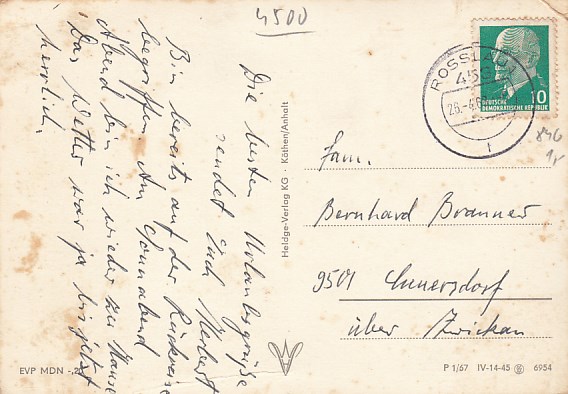 4500
Die besten Urlaubsgrüße
sendet Euch Herbert
Bin bereits auf der Rückreise
begriffen. Am Sonnabend
Abend bin ich wieder zu Hause
Das Wetter war ja bis jetzt
herrlich.
EVP MDN -,25
Heldge-Verlag KG · Köthen/Anhalt
ROSSLAU 1
453
DEUTSCHE
DEMOKRATISCHE REPUBLIK
10
846
Fam.
Bernhard Brenner
9501 Cunersdorf
über Zwickau
P 1/67 IV-14-45 6954